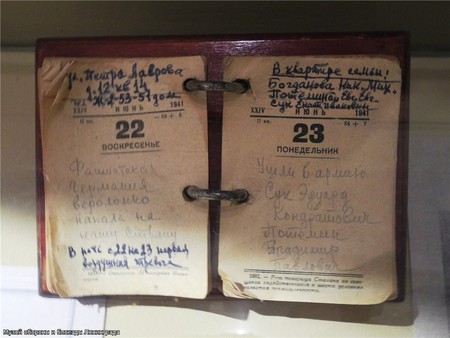 ул. Петра Лаврова
д. 12 кв 14
Ж-2-53-51 дом.
XXIV 1941
ИЮНЬ
22
ВОСКРЕСЕНЬЕ
Фашистская
Германия
вероломно
напала на
нашу страну
В ночь с 22 на 23 первая
воздушная тревога
В квартире семьи:
Богданова Ник. Мих.
XXIV 1941
ИЮНЬ
23
ПОНЕДЕЛЬНИК
Ушли в армию
Сук Эдуард
Кондратович
Потёмин
Владимир
Павлович
Музей обороны и блокады Ленинграда